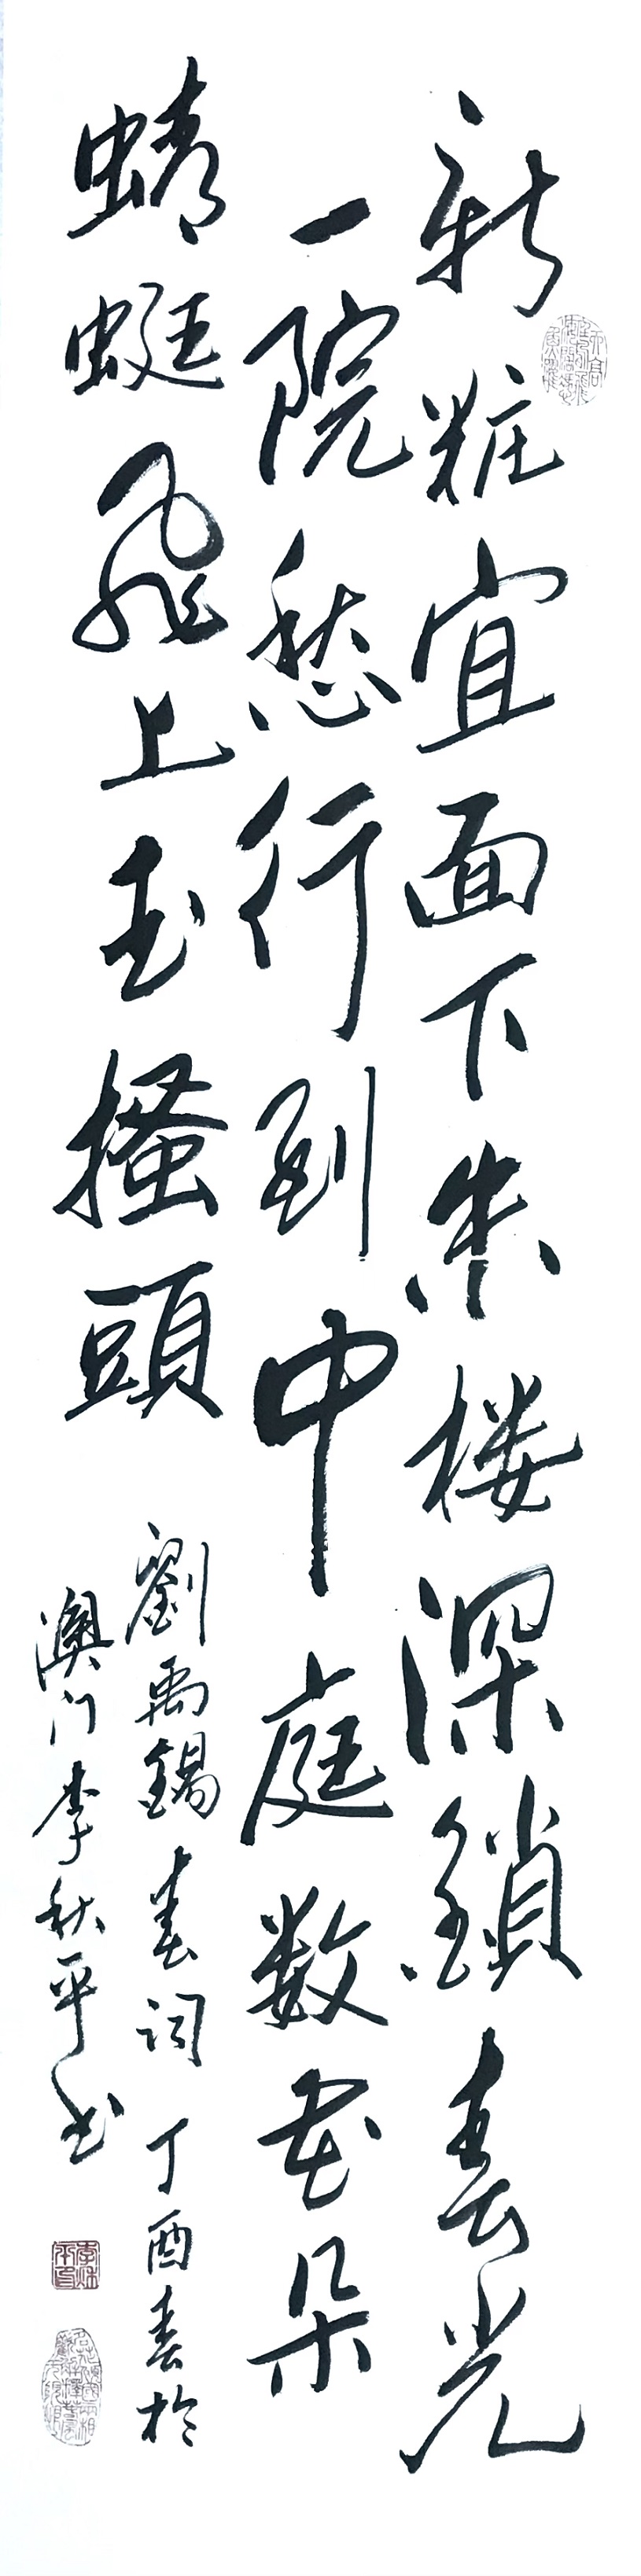 新粧宜面下朱楼深鎖春光
一院愁行到中庭数花朵
蜻蜓飛上玉搔頭
劉禹錫春词丁酉春於
澳门李秋平书